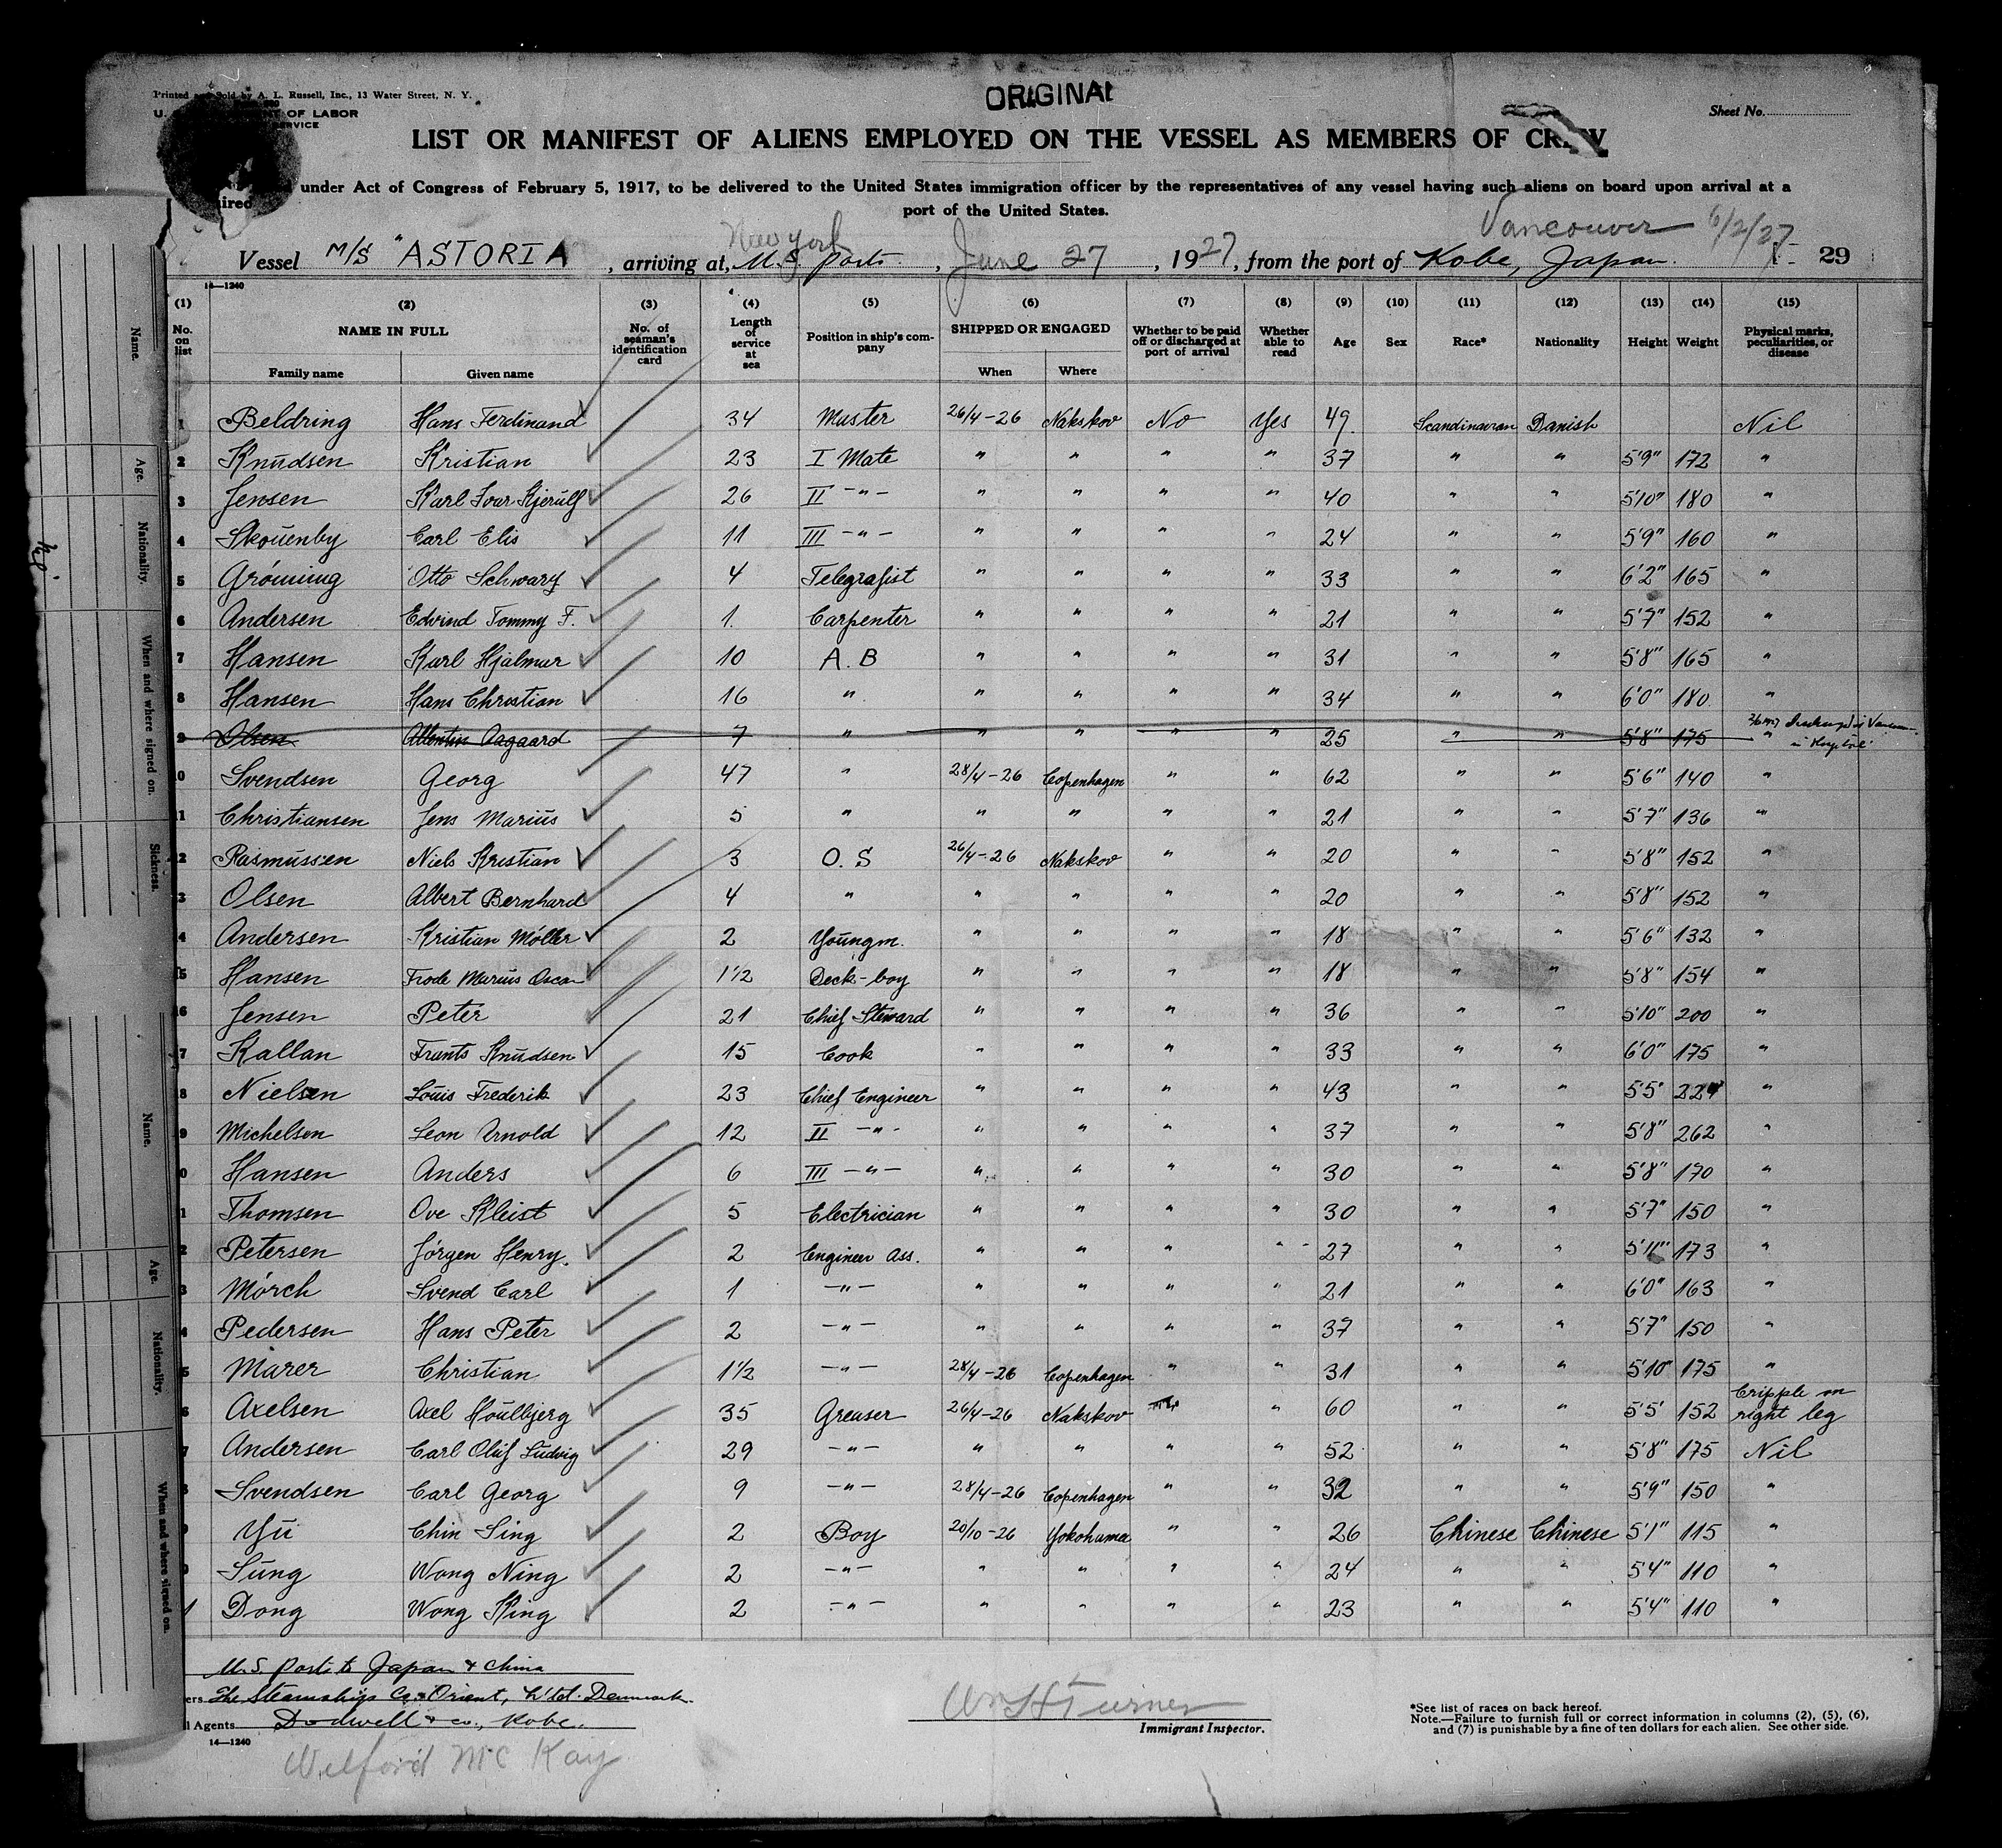 Printed and Sold by A. L. Russell, Inc., 13 Water Street, N. Y.
ORIGINAL
U. OF LABOR
Sheet No.
LIST OR MANIFEST OF ALIENS EMPLOYED ON THE VESSEL AS MEMBERS OF CREW
under Act of Congress of February 5, 1917, to be delivered to the United States immigration officer by the representatives of any vessel having such aliens on board upon arrival at a
port of the United States.
New York Vancouver 6/2/27
Vessel M/S "ASTORIA , arriving at, U.S. ports , June 27 , 1927, from the port of Kobe, Japan. 29
14—1240
(1) (2) (3) (4) (5) (6) (7) (8) (9) (10) (11) (12) (13) (14) (15)
No. on list NAME IN FULL Family name Given name No. of seaman's identification card Length of service at sea Position in ship's company SHIPPED OR ENGAGED When Where Whether to be paid off or discharged at port of arrival Whether able to read Age Sex Race* Nationality Height Weight Physical marks, peculiarities, or disease
1 Beldring Hans Ferdinand 34 Master 26/4-26 Nakskov No Yes 49. Scandinavian Danish Nil
2 Knudsen Kristian 23 I Mate " " " " 37 " " 5'9" 172 "
3 Jensen Karl Ivar Kjerulf 26 II -"- " " " " 40 " " 5'10" 180 "
4 Skouenby Carl Elis 11 III -"- " " " " 24 " " 5'9" 160 "
5 Grónning Otto Schwarz 4 Telegrafist " " " " 33 " " 6'2" 165 "
6 Andersen Edvind Tommy F. 1. Carpenter " " " " 21 " " 5'7" 152 "
7 Hansen Karl Hjalmar 10 A.B " " " " 31 " " 5'8" 165 "
8 Hansen Hans Christian 16 " " " " " 34 " " 6'0" 180. "
9 Olsen Aagaard 7 " " " " " 25 " " 5'8" 175 "
in Hospital
0 Svendsen Georg 47 " 28/4-26 Copenhagen " " 62 " " 5'6" 140 "
1 Christiansen Jens Marius 5 " " " " " 21 " " 5'7" 136 "
2 Rasmussen Niels Kristian 3 O.S 26/4-26 Nakskov " " 20 " " 5'8" 152 "
3 Olsen Albert Bernhard 4 " " " " " 20 " " 5'8" 152 "
4 Andersen Kristian Móller 2 Youngm. " " " " 18 " " 5'6" 132 "
15 Hansen Frode Marius Oscar 1 1/2 Deck-boy " " " " 18 " " 5'8" 154 "
16 Jensen Peter 21 Chief Steward " " " " 36 " " 5'10" 200 "
7 Kallan Frants Knudsen 15 Cook " " " " 33 " " 6'0" 175 "
8 Nielsen Louis Frederik 23 Chief Engineer " " " " 43 " " 5'5' 224 "
9 Michelsen Leon Arnold 12 II -"- " " " " 37 " " 5'8" 262 "
0 Hansen Anders 6 III -"- " " " " 30 " " 5'8" 170 "
1 Thomsen Ove Kleist 5 Electrician " " " " 30 " " 5'7" 150 "
2 Petersen Jórgen Henry. 2 Engineer Ass. " " " " 27 " " 5'11" 173 "
3 Mórch Svend Carl 1 -"- " " " " 21 " " 6'0" 163 "
4 Pedersen Hans Peter 2 -"- " " " " 37 " " 5'7" 150 "
5 Marer Christian 1 1/2 -"- 28/4-26 Copenhagen " " 31 " " 5'10" 175 "
6 Axelsen Axel Houlbjerg 35 Greaser 26/4-26 Nakskov " 60 " " 5'5' 152 Cripple on right leg
7 Andersen Carl Oluf Ludvig 29 -"- " " " " 52 " " 5'8" 175 Nil
8 Svendsen Carl Georg 9 -"- 28/4-26 Copenhagen " " 32 " " 5'9" 150 "
9 Yu Chin Sing 2 Boy 20/10-26 Yokohama " " 26 Chinese Chinese 5'1" 115 "
0 Sung Wong Ning 2 -"- " " " " 24 " " 5'4" 110 "
1 Dong Wong King 2 -"- " " " " 23 " " 5'4" 110 "
U.S. Ports to Japan & China
ers The Steamships Co. Orient, L'td. Denmark.
l Agents Dodwell & co., Kobe.
14—1240
Welford McKay
Wm H Turner
Immigrant Inspector.
*See list of races on back hereof.
Note.—Failure to furnish full or correct information in columns (2), (5), (6),
and (7) is punishable by a fine of ten dollars for each alien. See other side.
Name.
Age.
Nationality.
When and where signed on.
Sickness.
Name.
Age.
Nationality.
When and where signed on.